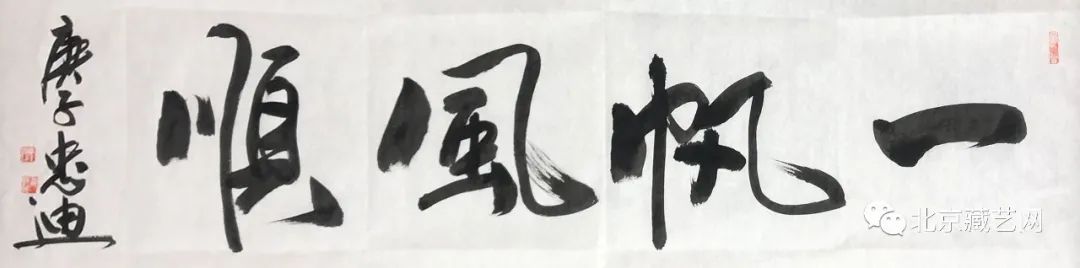 一帆風順
庚子忠迪
北京藏艺网